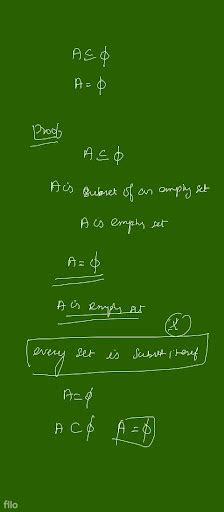 A ⊆ ϕ
A = ϕ
Proof
A ⊆ ϕ
A is subset of an empty set
A is empty set
A = ϕ
A is empty set
*
every set is subset itself
A = ϕ
A ⊂ ϕ A = ϕ
filo